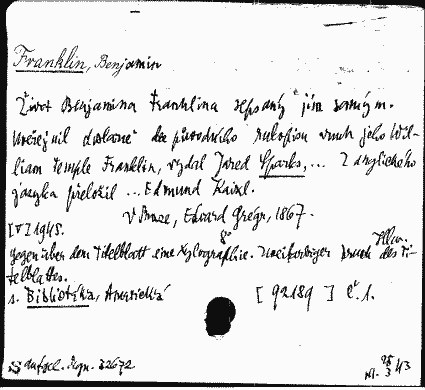 Franklin, Benjamin
Život Benjamina Franklina sepsaný jím samým.
Uveřejnil dle původního rukopisu vnuk jeho Wil-
liam Temple Franklin, vydal Jared Sparks,... Z anglického
jazyka přeložil ... Edmund Kaizl.
V Praze, Eduard Grégr, 1867.
8°
[V] 1945.
gegenüber dem Titelblatt eine Xylographie. Zweifarbiger Druck des Ti-
telblattes.
s. Bibliotéka, Americká
[ 92189 ] č. 1.
32672